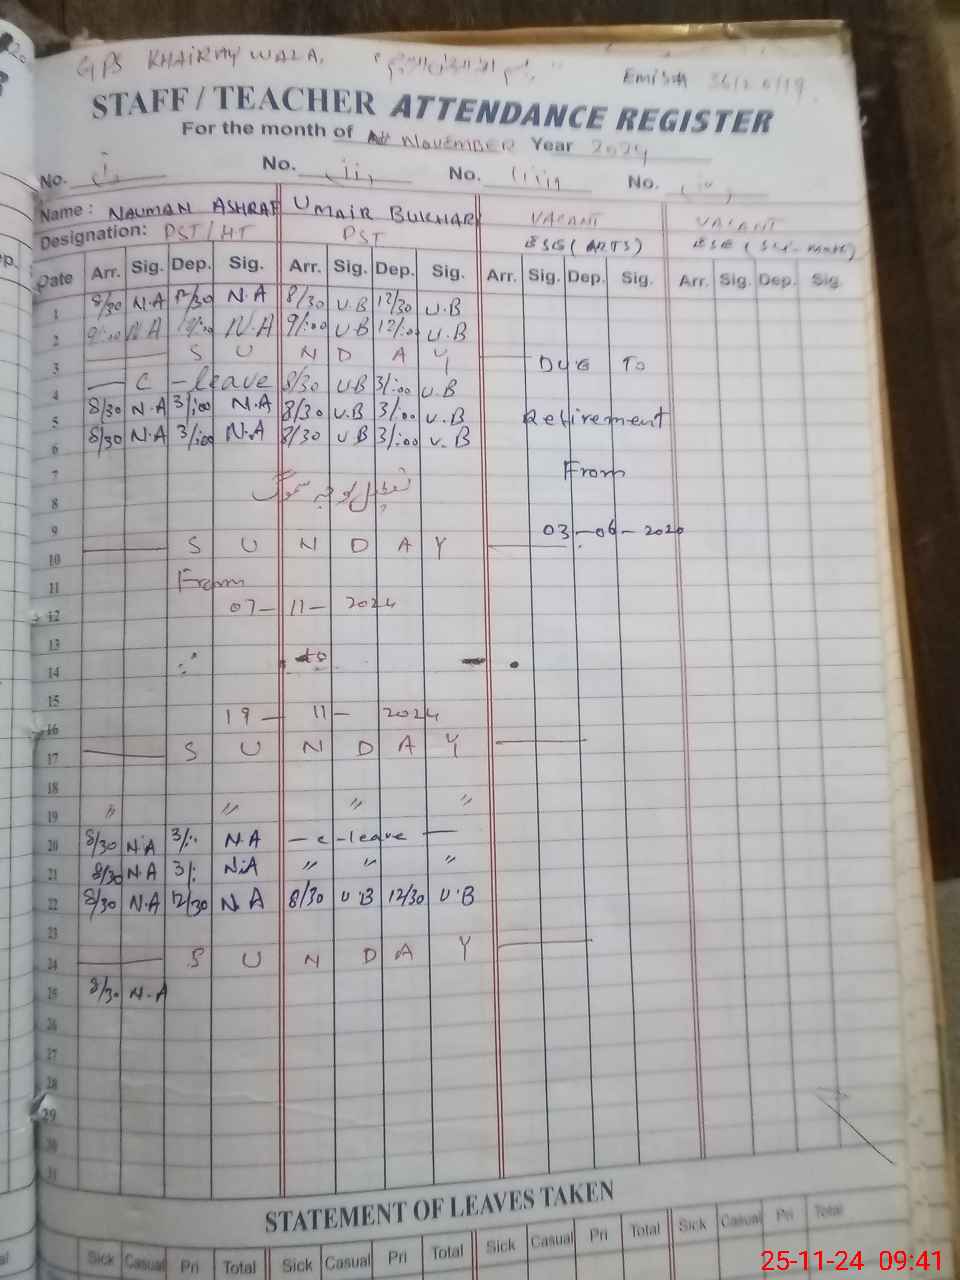 GPS KHAIRAY WALA,
STAFF / TEACHER ATTENDANCE REGISTER
For the month of November Year 2024
No. No. No. No.
Name: NAUMAN ASHRAF UMAIR BUKHARI VACANT VACANT
Designation: PST/HT PST ESE (ARTS) ESE (
Date Arr. Sig. Dep. Sig. Arr. Sig. Dep. Sig. Arr. Sig. Dep. Sig. Arr. Sig. Dep. Sig.
1 8/30 N.A 12/30 N.A 8/30 U.B 12/30 U.B
2 9/:00 N.A 12/:00 N.A 9/:00 U.B 12/:00 U.B
3 S U N D A Y DUE To
4 — C - leave 8/30 U.B 3/:00 U.B
5 8/30 N.A 3/:00 N.A 8/30 U.B 3/:00 U.B Retirement
6 8/30 N.A 3/:00 N.A 8/30 U.B 3/:00 U.B
7 From
8
9 03-06-2020
10 S U N D A Y
11 From
12 07-11-2024
13
14 to
15
16 19-11-2024
17 S U N D A Y
18
19 〃 〃 〃 〃
20 8/30 N.A 3/:. N.A — c - leave —
21 8/30 N.A 3/: N.A 〃 〃 〃
22 8/30 N.A 12/30 N.A 8/30 U.B 12/30 U.B
23
24 S U N D A Y
25 8/30 N.A
26
27
28
29
30
31
STATEMENT OF LEAVES TAKEN
Sick Casual Pri Total Sick Casual Pri Total Sick Casual Pri Total Sick Casual Pri Total
25-11-24 09:41